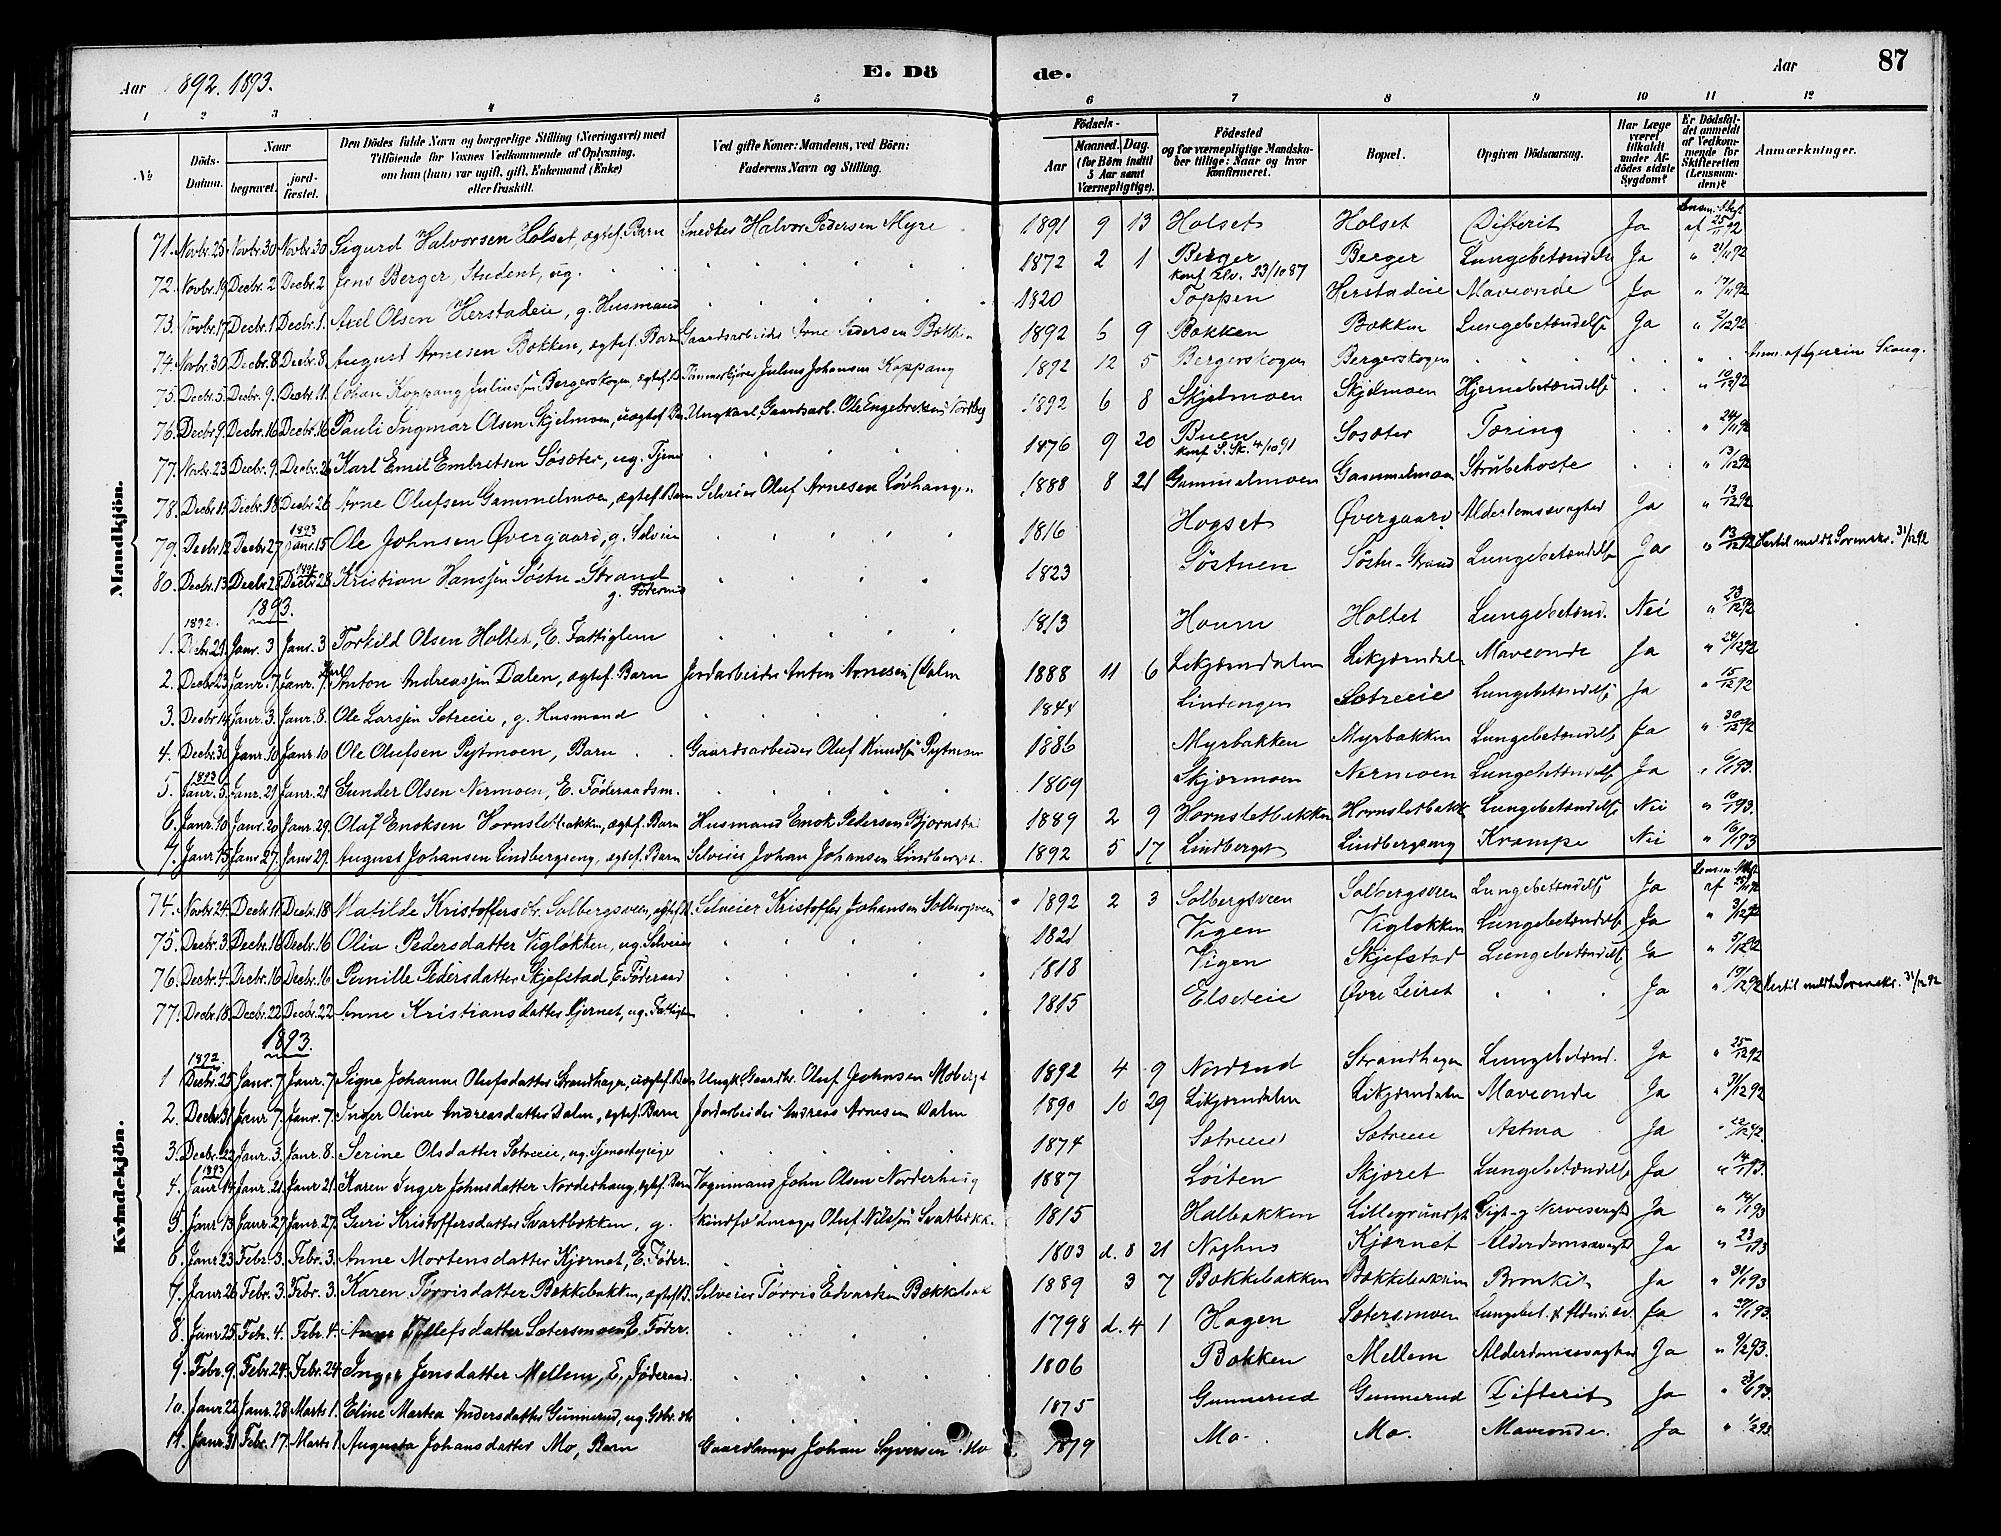 Aar 1892. 1893.
E. Dö
de.
Aar
87
1 2 3 4 5 6 7 8 9 10 11 12
№
Döds-Datum.
Naar
begravet.
jord-fæstet.
Den Dödes fulde Navn og borgerlige Stilling (Næringsvei) med
Tilföiende for Voxnes Vedkommende af Oplysning,
om han (hun) var ugift, gift, Enkemand (Enke)
eller fraskilt.
Ved gifte Koner: Mandens, ved Börn:
Faderens Navn og Stilling.
Födsels-
Aar
Maaned. Dag.
(for Börn indtil
5 Aar samt
Værnepligtige).
Födested
og for værnepligtige Mandska-
ber tillige: Naar og hvor
konfirmeret.
Bopæl.
Opgiven Dödsaarsag.
Har Læge
været
tilkaldt
under Af-
dödes sidste
Sygdom?
Er Dödsfal-
det anmeldt
af Vedkom-
mende for
Skifteretten
(Lensman-
den)?
Anmærkninger.
Mandkjön.
71. Novbr. 25 Novbr. 30 Novbr. 30 Sigurd Halvorsen Holset, ægtef. Barn Snedker Halvor Pedersen Myre 1891 9 13 Holset Holset Difterit Ja af 25/11 92
72. Novbr. 19 Decbr. 2 Decbr. 2 Jens Berger, Student, ug. 1872 2 1 Berger konf. Elv. 23/10 87 Berger Lungebetændelse Ja " 21/11 92
73. Novbr. 17 Decbr. 1 Decbr. 1. Axel Olsen Herstadeie, g. Husmand 1820 Toppen Herstadeie Maveonde Ja " 17/11 92
74. Novbr. 30 Decbr. 8 Decbr. 8. August Arnesen Bækken, ægtef. Barn Gaardsarbeider Arne Pedersen 1892 6 9 Bækken Bækken Lungebetændelse Ja " 2/12 92
75. Decbr. 5. Decbr. 9. Decbr. 11. Johan Koppang Juliussen Bergerskogen, ægtef. B. Tømmerkjører Julius Johansen Koppang 1892 12 5 Bergerskogen Bergerskogen Anm. af Gurin Skaug.
76. Decbr. 9. Decbr. 16 Decbr. 16 Pauli Ingmar Olsen Skjelmoen, uægtef. Ba. Ungkarl Gaardsarb. Ole Engebretsen 1892 6 8 Skjelmoen Skjelmoen Hjernebetændelse " 10/12 92
77. Novbr. 23 Decbr. 9. Decbr. 26 Karl Emil Embretsen Søsæter, ug. Tjener 1876 9 20 Buen konf. S. Sk. 4/10 91 Sosæter Tæring " 24/11 92
78. Decbr. 11 Decbr. 18 Decbr. 26 Arne Olufsen Gammelmoen, ægtef. Barn Selveier Oluf Arnesen Løvhaugen 1888 8 21 Gammelmoen Gammelmoen Strubehoste " 13/12 92
79. Decbr. 12 Decbr. 27 1893 Janr. 15 Ole Johnsen Øvergaard, g. Selveier 1816 Hogset Øvergaard Alderdomssvaghed Ja " 13/12 92
80. Decbr. 13 Decbr. 28 Decbr. 28 Kristian Hanssen Søstu-Strand g. Føderaad 1823 Søstuen Søstu-Strand Lungebetændelse Ja " 13/12 92 Hertil meldt Sorenskr. 31/12 92
1893.
1. 1892. Decbr. 21. Janr. 3 Janr. 3 Torkild Olsen Holtet, E. Fattiglem 1813 Houm Holtet Lungebetænd. Nei " 23/12 92
2. Decbr. 23 Janr. 7. Janr. 7 Anton Andreassen Dalen, ægtef. Barn Jordarbeider Anton Arnesen Dalen 1888 11 6 Likjærndalen Likjærndalen Maveonde Ja " 24/12 92
3. Decbr. 14. Janr. 3. Janr. 8. Ole Larssen Sætreeie, g. Husmand 1844 Lindengen Sætreeie Lungebetændelse Ja " 15/12 92
4. Decbr. 30 Janr. 10 Janr. 10 Ole Olufsen Pytmoen, Barn Gaardsarbeider Oluf Knudsen Pytmoen 1886 Myrbakken Myrbakken Lungebetændelse Ja " 30/12 92
5. 1893 Janr. 5. Janr. 21 Janr. 21 Gunder Olsen Nermoen, E. Føderaadsm. 1809 Skjærmoen Nermoen Lungebetændelse Ja " 6/1 93.
6. Janr. 10. Janr. 20 Janr. 29. Olaf Enoksen Hornsletbakken, ægtef. Barn Husmand Enok Pedersen Bjørnstad 1889 2 9 Hornsletbakken Hornsletbakk Lungebetændelse Nei " 10/1 93.
7. Janr. 15. Janr. 27. Janr. 29. August Johansen Lindbergseng, ægtef. Barn Selveier Johan Johansen Lindberget. 1892 5 17 Lindberget Lindbergseng Krampe Nei " 16/1 93
Kvindekjön.
74. Novbr. 24. Decbr. 11. Decbr. 18 Matilde Kristoffersdtr. Solbergsveen, ægtef. B. Selveier Kristoffer Johansen Solbergsveen 1892 2 3 Solbergsveen Solbergsveen Lungebetændelse Ja af 25/11 92
75. Decbr. 3. Decbr. 16 Decbr. 16 Olia Pedersdatter Vigløkken, ug. Selveier 1821 Vigen Vigløkken Lungebetændelse Ja " 3/12 92
76. Decbr. 4. Decbr. 16 Decbr. 16 Pernille Pedersdatter Skjefstad, E. Føderaad 1818 Vigen Skjefstad Lungebetændelse Ja " 5/12 92
77. Decbr. 18. Decbr. 22 Decbr. 22 Kristiansdatter Kjernet, ug. Fattiglem 1815 Elseteie Øvre Leiret Ja " 19/12 92 Hertil meldt Sorenskr. 31/12 92
1893.
1 1892 Decbr. 25 Janr. 7 Janr. 7 Signe Johanne Olufsdatter Strandhagen, uægtef. Barn Ungk. Gaardbr. Oluf Johnsen Moberget 1892 4 9 Nordsud Strandhagen Lungebetænd. Ja " 25/12 92
2. Decbr. 31. Janr. 7. Janr. 7 Inger Oline Andreasdatter Dalen, ægtef. Barn Jordarbeider Andreas Arnesen Dalen 1890 10 29 Likjærndalen Likjærndalen Maveonde Ja " 31/12 92
3. Decbr. 22 Janr. 3. Janr. 8. Serine Olsdatter Sætreeie, ug. Tjenestepige 1874 Sætreeie Sætreeie Astma Ja " 22/12 92.
4. 1893 Janr. 14 Janr. 21. Janr. 21. Karen Inger Johnsdatter Norderhaug, ægtef. Barn Vognmand John Olsen Norderhaug 1887 Løiten Skjæret Lungebetændelse Ja " 14/1 93.
5. Janr. 13 Janr. 27 Janr. 27. Guri Kristoffersdatter Svartbækken, g. Skindfeldmager Oluf Nilssen Svartbækk. 1815 Halbakken Gigt- og Nervesvagh. Ja " 14/1 93
6. Janr. 23 Febr. 3. Febr. 3. Anne Mortensdatter Kjernet, E. Føder. 1803 d. 8 21 Nyhus Kjernet Alderdomssvagh. Ja " 23/1 93
7. Janr. 26 Febr. 3. Febr. 3. Karen Tørrisdatter Bækkebakken, ægtef. B. Selveier Tørris Edvardsen Bækkebak 1889 3 7 Bækkebakken Bækkebakken Bronkit Ja " 31/1 93
8. Janr. 25 Febr. 4. Febr. 4. Anne Tollefsdatter Sætersmoen, E. Føder. 1798 d. 4 1 Hagen Sætersmoen Lungebet. & Alderd.sv. Ja " 29/1 93.
9. Febr. 9 Febr. 24. Febr. 24. Inger Jensdatter Mellem, E. Føderaad. 1806 Bækken Mellem Alderdomssvaghed Ja " 9/2 93.
10. Janr. 22 Janr. 28 Marts 1. Eline Martea Andersdatter Gunnerud, ug. Gbr. dtr. 1875 Gunnerud Gunnerud Difterit Ja " 93.
11. Janr. 31 Febr. 17 Marts 1. Augusta Johansdatter Mo, Barn Gaardbruger Johan Syversen Mo 1879 Mo. Mo. Maveonde. Ja " 1/2 93.